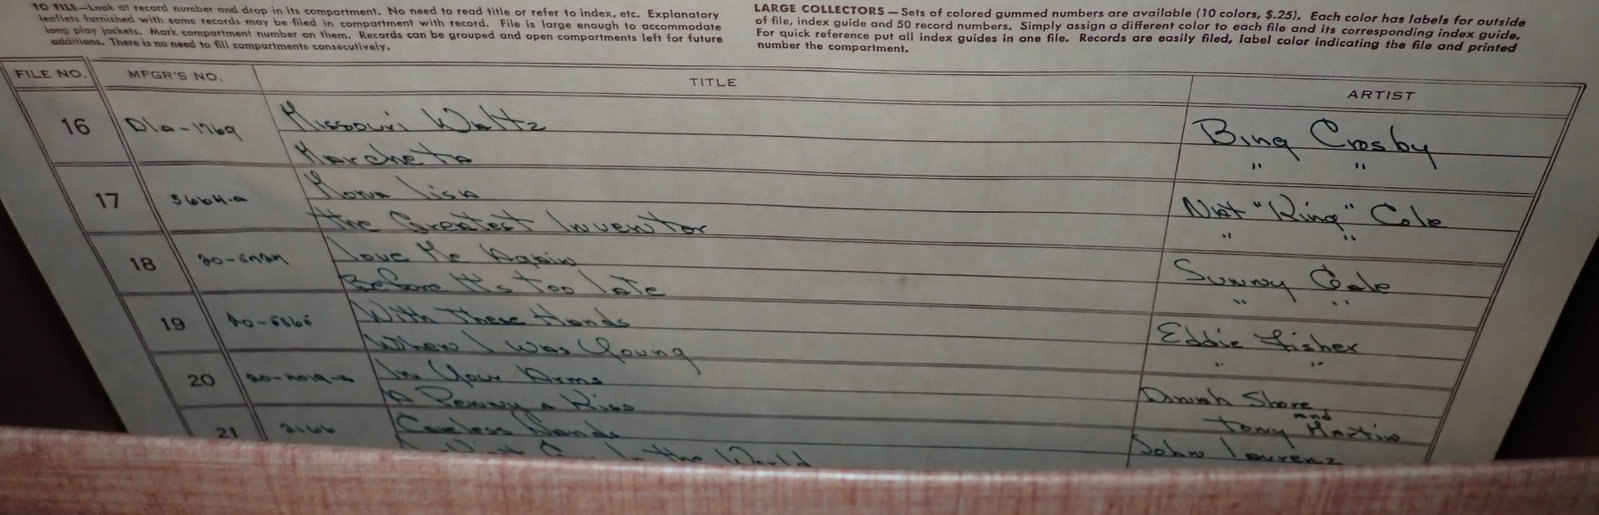 TO FILE—Look at record number and drop in its compartment. No need to read title or refer to index, etc. Explanatory
leaflets furnished with some records may be filed in compartment with record. File is large enough to accommodate
long play jackets. Mark compartment number on them. Records can be grouped and open compartments left for future
additions. There is no need to fill compartments consecutively.
LARGE COLLECTORS — Sets of colored gummed numbers are available (10 colors, $.25). Each color has labels for outside
of file, index guide and 50 record numbers. Simply assign a different color to each file and its corresponding index guide.
For quick reference put all index guides in one file. Records are easily filed, label color indicating the file and printed
number the compartment.
FILE NO. MFGR'S NO. TITLE ARTIST
16 Dla-1769 Missouri Waltz Bing Crosby
Marcheta " "
17 Mona Lisa Nat "King" Cole
The Greatest Inventor " "
18 Love Me Again Sunny Gale
Before It's Too Late " "
19 With These Hands Eddie Fisher
When I was Young " "
20 In Your Arms Dinah Shore
A Penny a Kiss and Tony Martin
21 Careless Hands John Laurenz
In the World